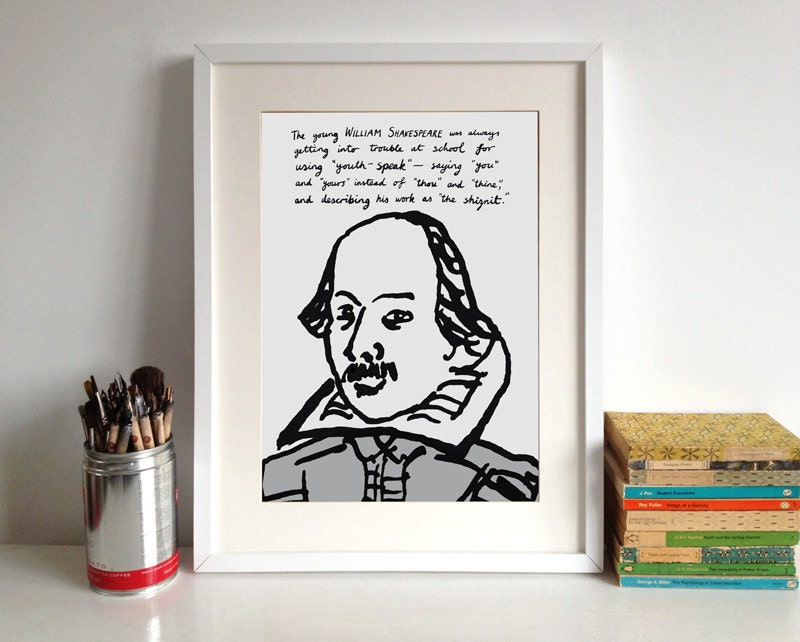 The young WILLIAM SHAKESPEARE was always
getting into trouble at school for
using "youth-speak" — saying "you"
and "yours" instead of "thou" and "thine,"
and describing his work as "the shiznit."
COFFEE
J. Pen Modern Economics
Roy Fuller Image of a Society
Death and the
George A. Miller The Psychology of Communication